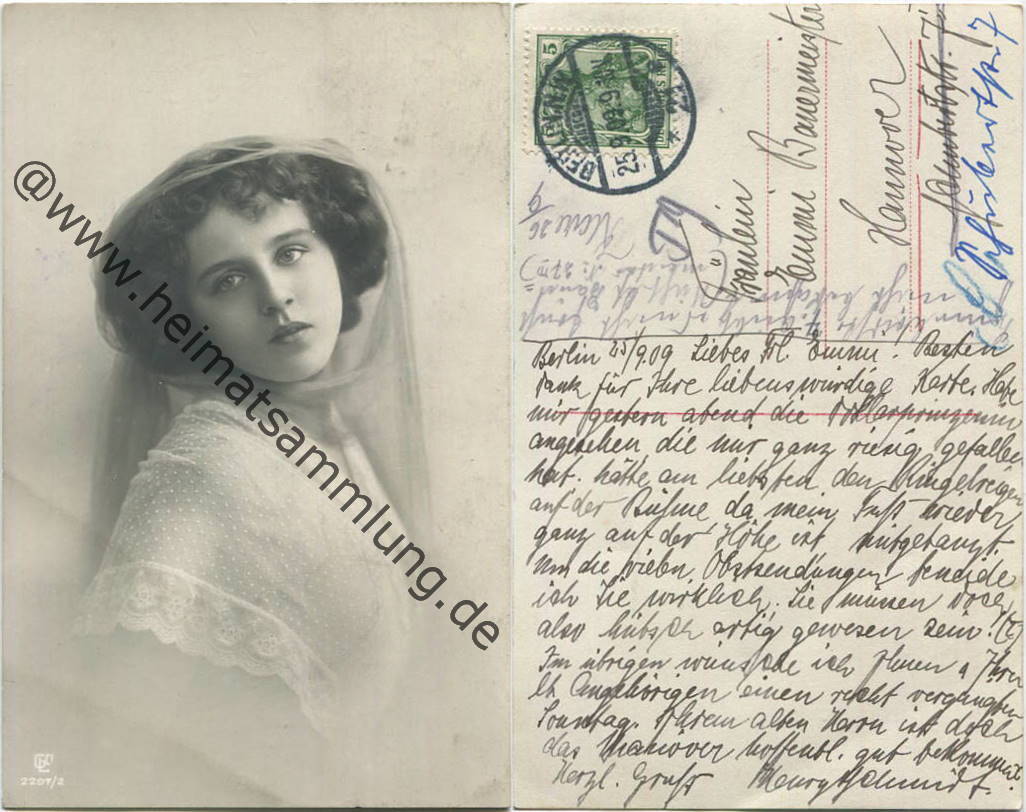 @www.heimatsammlung.de
2207/2
5
BERLIN
25.
Fräulein
Emmi Bauermeister
Hannover
Schubertstr. 7
Berlin 25/9.09 Liebes Frl. Emmi! Besten
Dank für Ihre liebenswürdige Karte. Habe
mir gestern abend die
angesehen, die mir ganz riesig gefallen
hat. hätte am liebsten den Ringelreigen
auf der Bühne da mein Fuß wieder
ganz auf der Höhe ist mitgetanzt.
Um die vielen Obstsendungen beneide
ich Sie wirklich. Sie müssen doch
also hübsch artig gewesen sein!
Im übrigen wünsche ich Ihnen u Ihren
lb. Angehörigen einen recht vergnügten
Sonntag. Ihrem alten Herrn ist doch
das Manöver hoffentl. gut bekommen.
Herzl. Gruß